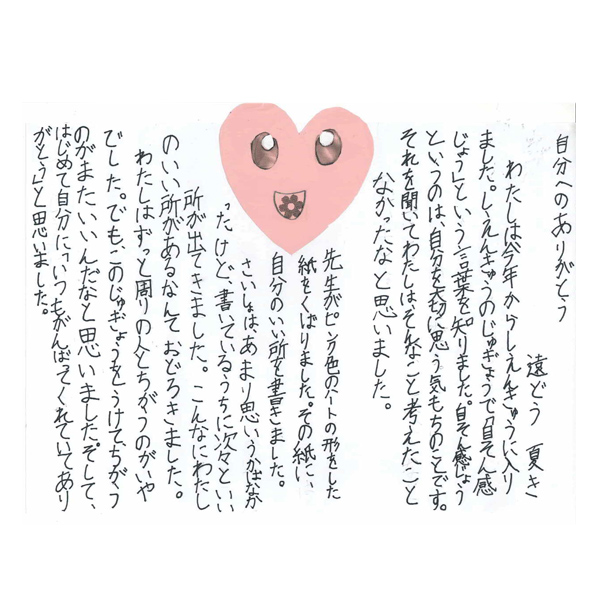 自分へのありがとう
遠どう　夏き
わたしは今年からしえんきゅうに入り
ました。しえんきゅうのじゅぎょうで「自そん感
じょう」という言葉を知りました。自そん感じょう
というのは、自分を大切に思う気もちのことです。
それを聞いてわたしは、そんなこと考えたこと
なかったなと思いました。
先生がピンク色のハートの形をした
紙をくばりました。その紙に、
自分のいい所を書きました。
さいしょは、あまり思いうかばなか
ったけど、書いているうちに次々といい
所が出てきました。こんなにわたし
のいい所があるなんておどろきました。
わたしはずっと周りの人とちがうのがいや
でした。でも、このじゅぎょうをうけてちがう
のがまたいいんだなと思いました。そして、
はじめて自分に「いつもがんばってくれていてあり
がとう」と思いました。